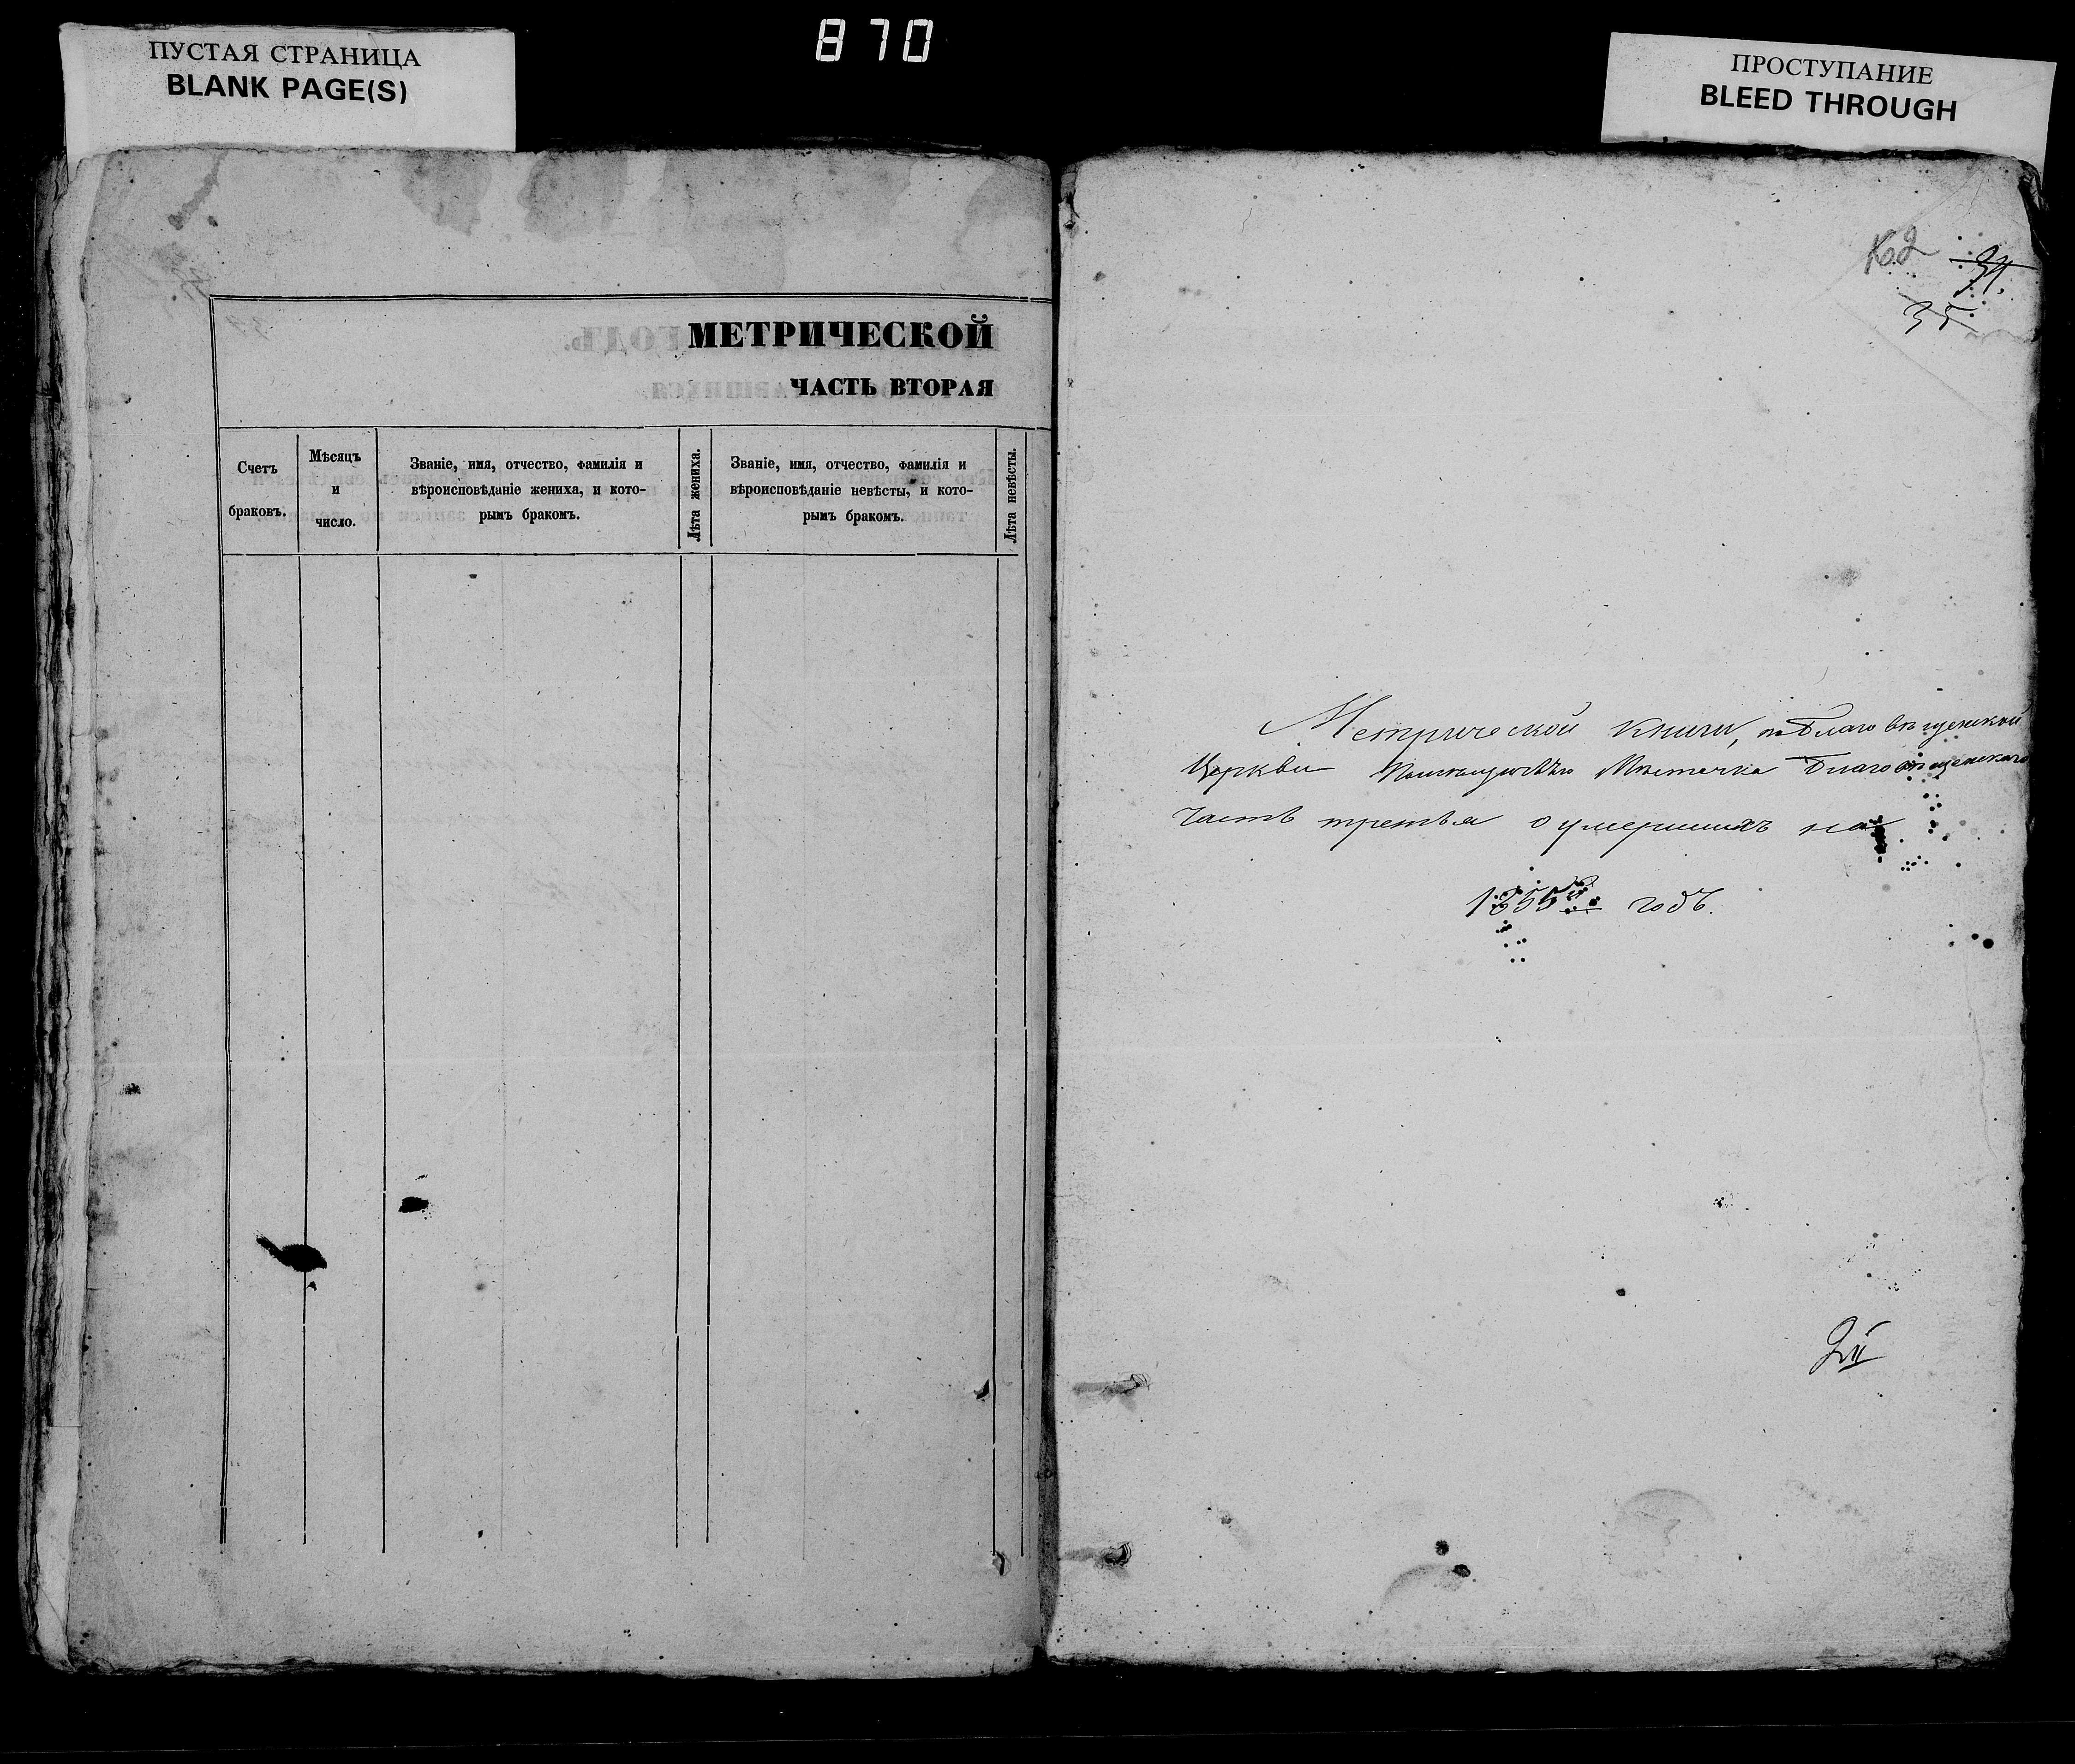 870
ПУСТАЯ СТРАНИЦА
BLANK PAGE(S)
ПРОСТУПАНИЕ
BLEED THROUGH
МЕТРИЧЕСКОЙ
ЧАСТЬ ВТОРАЯ
Счетъ
браковъ.
Мѣсяцъ
и
число.
Званіе, имя, отчество, фамилія и
вѣроисповѣданіе жениха, и кото-
рымъ бракомъ.
Лѣта жениха.
Званіе, имя, отчество, фамилія и
вѣроисповѣданіе невѣсты, и кото-
рымъ бракомъ.
Лѣта невѣсты.
35
Метрической книги, Благовѣщенской
Церкви Мѣстечка Благовѣщенскаго
Часть третья о умершихъ на
1855й годъ.